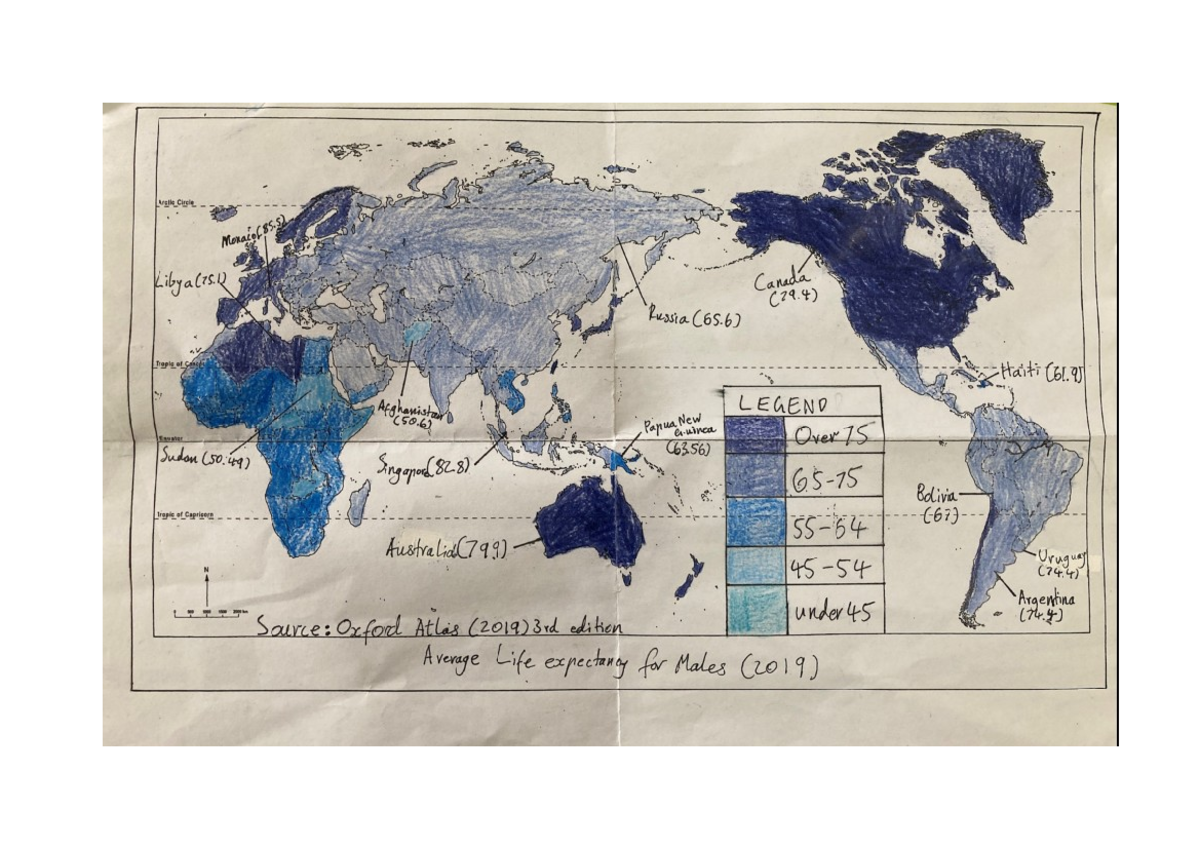 Arctic Circle
Monaco(85.5)
Libya(75.1)
Canada
(79.4)
Russia (65.6)
Tropic of Cancer
Haiti (61.9)
LEGEND
Over 75
65-75
55-64
45-54
under 45
Afghanistan
(50.6)
Papua New
Guinea
(63.56)
Equator
Sudan (50.49)
Singapore(82.8)
Bolivia
(67)
Tropic of Capricorn
Australia(79.9)
Uruguay
(74.4)
Argentina
(74.4)
N
Source: Oxford Atlas (2019) 3rd edition
Average Life expectancy for Males (2019)